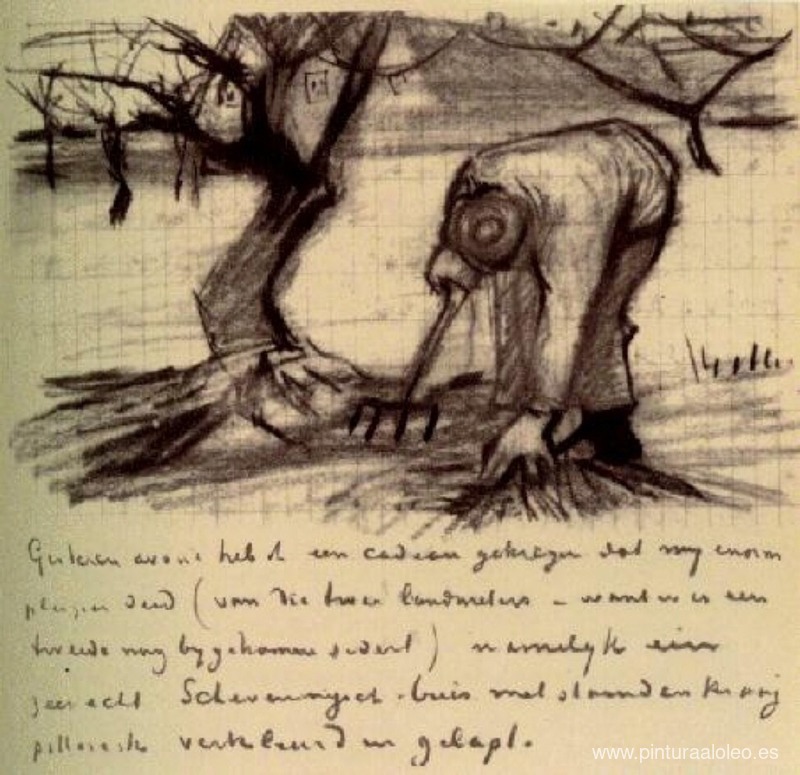 Gisteren avond heb ik een cadeau gekregen dat mij enorm
plezier deed (van die twee landmeters - want er is een
tweede nog bygekomen sedert) namelyk een
zeer echt Schevenings buis met staanden kraag
pittoresk verkleurd en gelapt.
www.pinturaaloleo.es